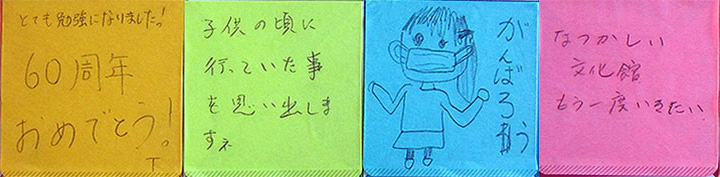 とても勉強になりましたっ!
60周年
おめでとう!。
T
子供の頃に
行っていた事
を思い出しま
すネ
がんばろう
なつかしい
文化館
もう一度いきたい